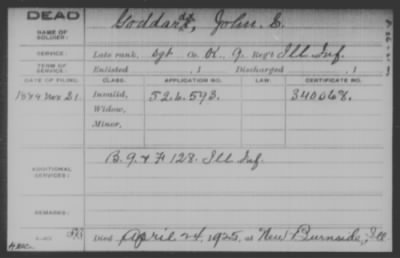 DEAD
NAME OF SOLDIER: Goddard, John E.
SERVICE: Late rank, Sgt Co. K, 9 Reg't Ill Inf.
TERM OF SERVICE: Enlisted , 1 Discharged , 1
DATE OF FILING. CLASS. APPLICATION NO. LAW. CERTIFICATE NO.
1884 Nov 21. Invalid, 526.593. 340068.
Widow,
Minor,
ADDITIONAL SERVICES: B. 9. & F 128. Ill Inf.
REMARKS:
Died April 24, 1925, at New Burnside, Ill